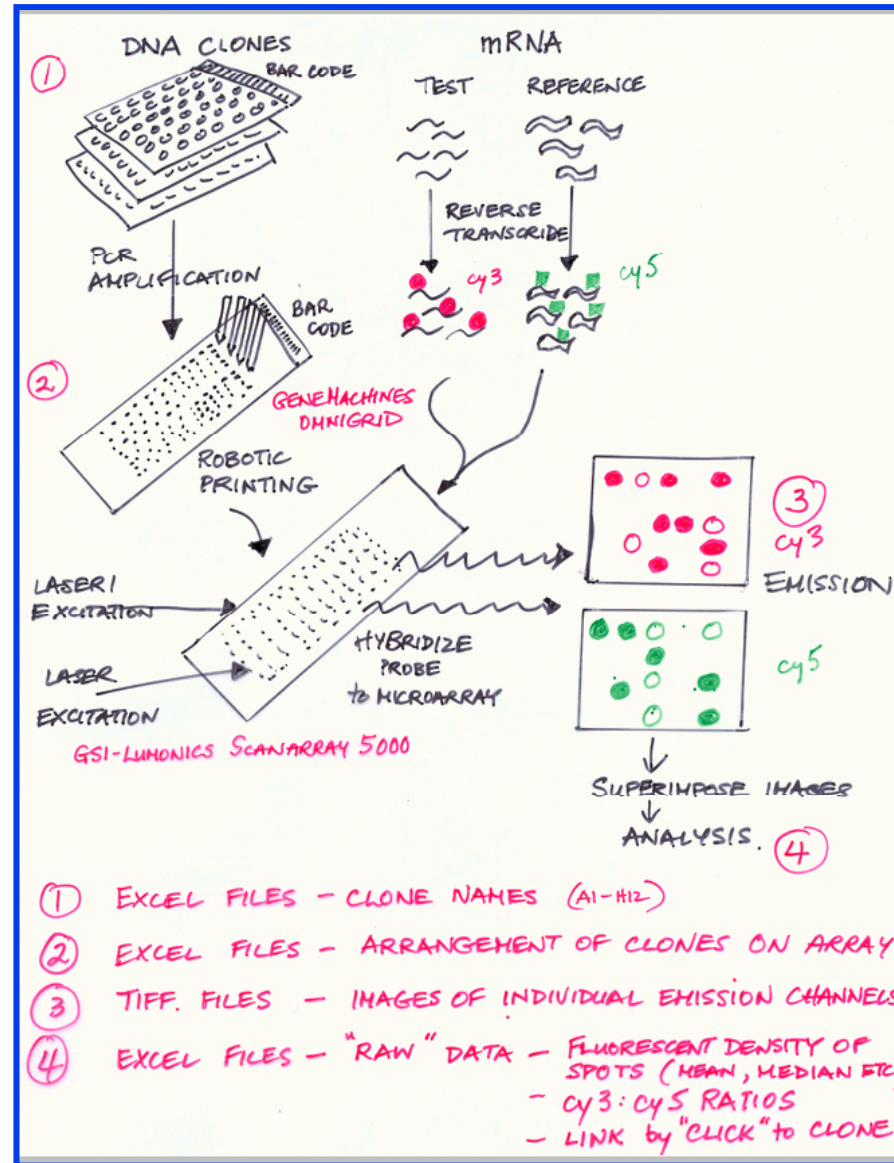 ①
DNA CLONES
BAR CODE
mRNA
TEST
REFERENCE
REVERSE
TRANSCRIDE
PCR
AMPLIFICATION
cy3
cy5
BAR
CODE
②
GENEMACHINES
OMNIGRID
ROBOTIC
PRINTING
③
cy3
EMISSION
LASER 1
EXCITATION
HYBRIDIZE
PROBE
to MICROARRAY
cy5
LASER
EXCITATION
GSI-LUMONICS SCANARRAY 5000
SUPERIMPOSE IMAGES
ANALYSIS.
④
① EXCEL FILES - CLONE NAMES (A1-H12)
② EXCEL FILES - ARRANGEMENT OF CLONES ON ARRAY
③ TIFF. FILES - IMAGES OF INDIVIDUAL EMISSION CHANNELS
④ EXCEL FILES - "RAW" DATA - FLUORESCENT DENSITY OF
SPOTS (MEAN, MEDIAN ETC
- cy3:cy5 RATIOS
- LINK by "CLICK" to CLONE